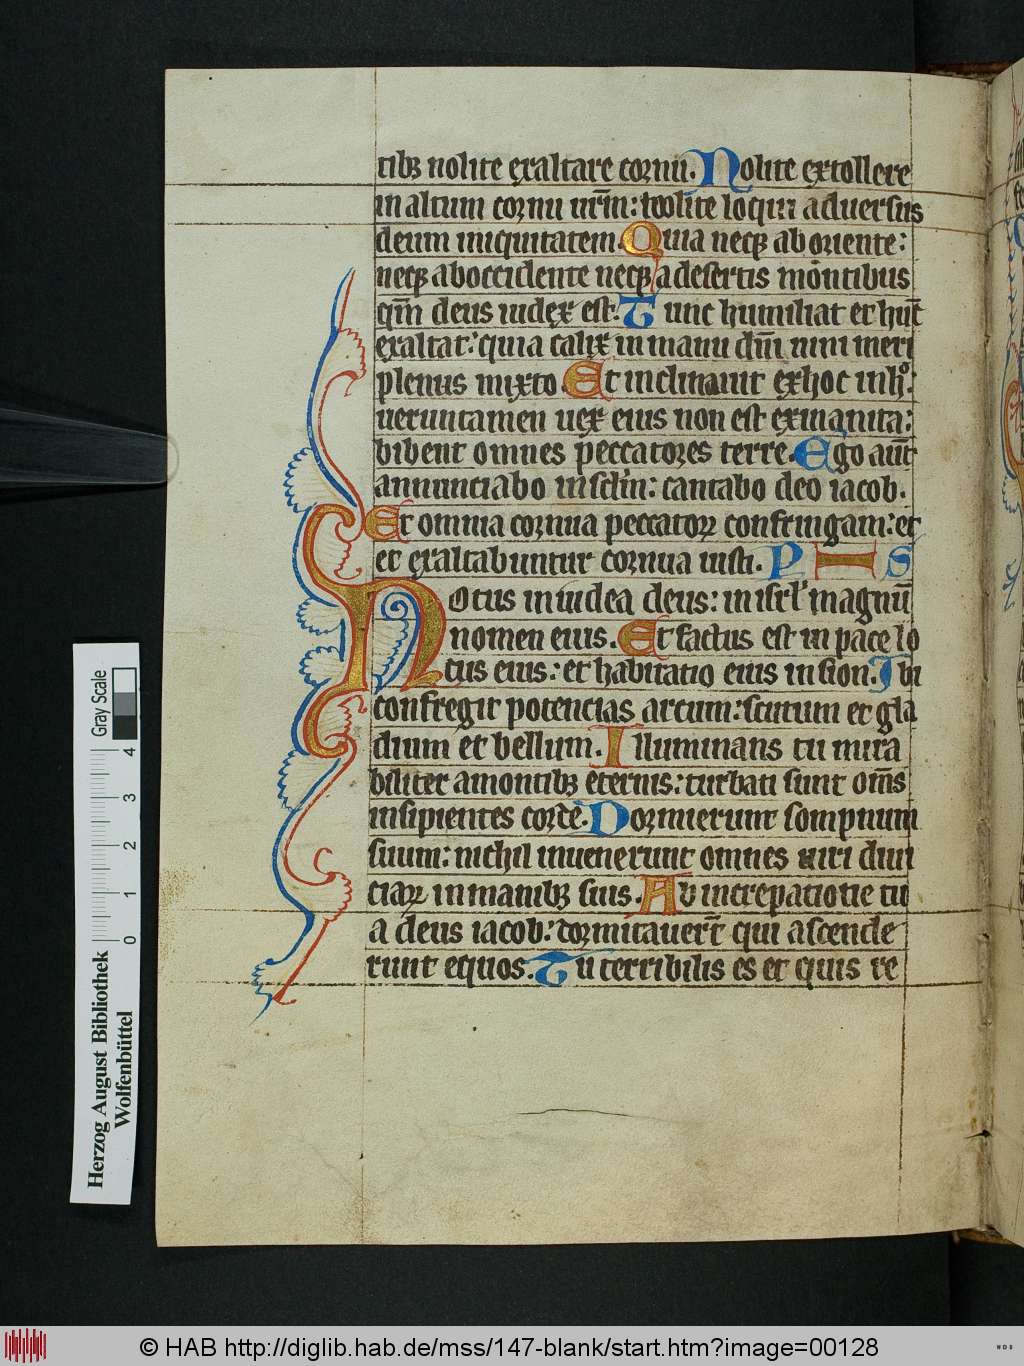 tibꝫ nolite exaltare cornu. Nolite extollere
in altum cornu ur̄m: nolite loqui aduersus
deum iniquitatem. Quia neqꝫ ab oriente:
neqꝫ aboccidente neqꝫ adesertis montibus
qm̄ deus iudex est. Tunc humiliat et hūc
exaltat: quia calix in manu dn̄i uini meri
plenus mixto. Et inclinauit exhoc inhͦ:
ueruntamen uex eius non est exinanita:
bibent omnes peccatores terre. Ego aūt
annunciabo insclm̄: cantabo deo iacob.
Et omnia cornua peccatoꝝ confringam: et
et exaltabuntur cornua iusti. P I S
Notus iniudea deus: in isrl' magnū
nomen eius. Et factus est in pace lo
cus eius: et habitatio eius in sion. Ibi
confregit potencias arcum: scutum et gla
dium et bellum. Illuminans tu mira
biliter amontibꝫ eternis: turbati sunt om̄s
insipientes corde. Dormierunt sompnum
suum: nichil inuenerunt omnes uiri diui
ciaꝝ in manibꝫ suis. Ab increpatione tu
a deus iacob: dormitauer̄t qui ascende
runt equos. Tu terribilis es et quis re
Herzog August Bibliothek
Wolfenbüttel
Gray Scale
0 1 2 3 4
© HAB http://diglib.hab.de/mss/147-blank/start.htm?image=00128